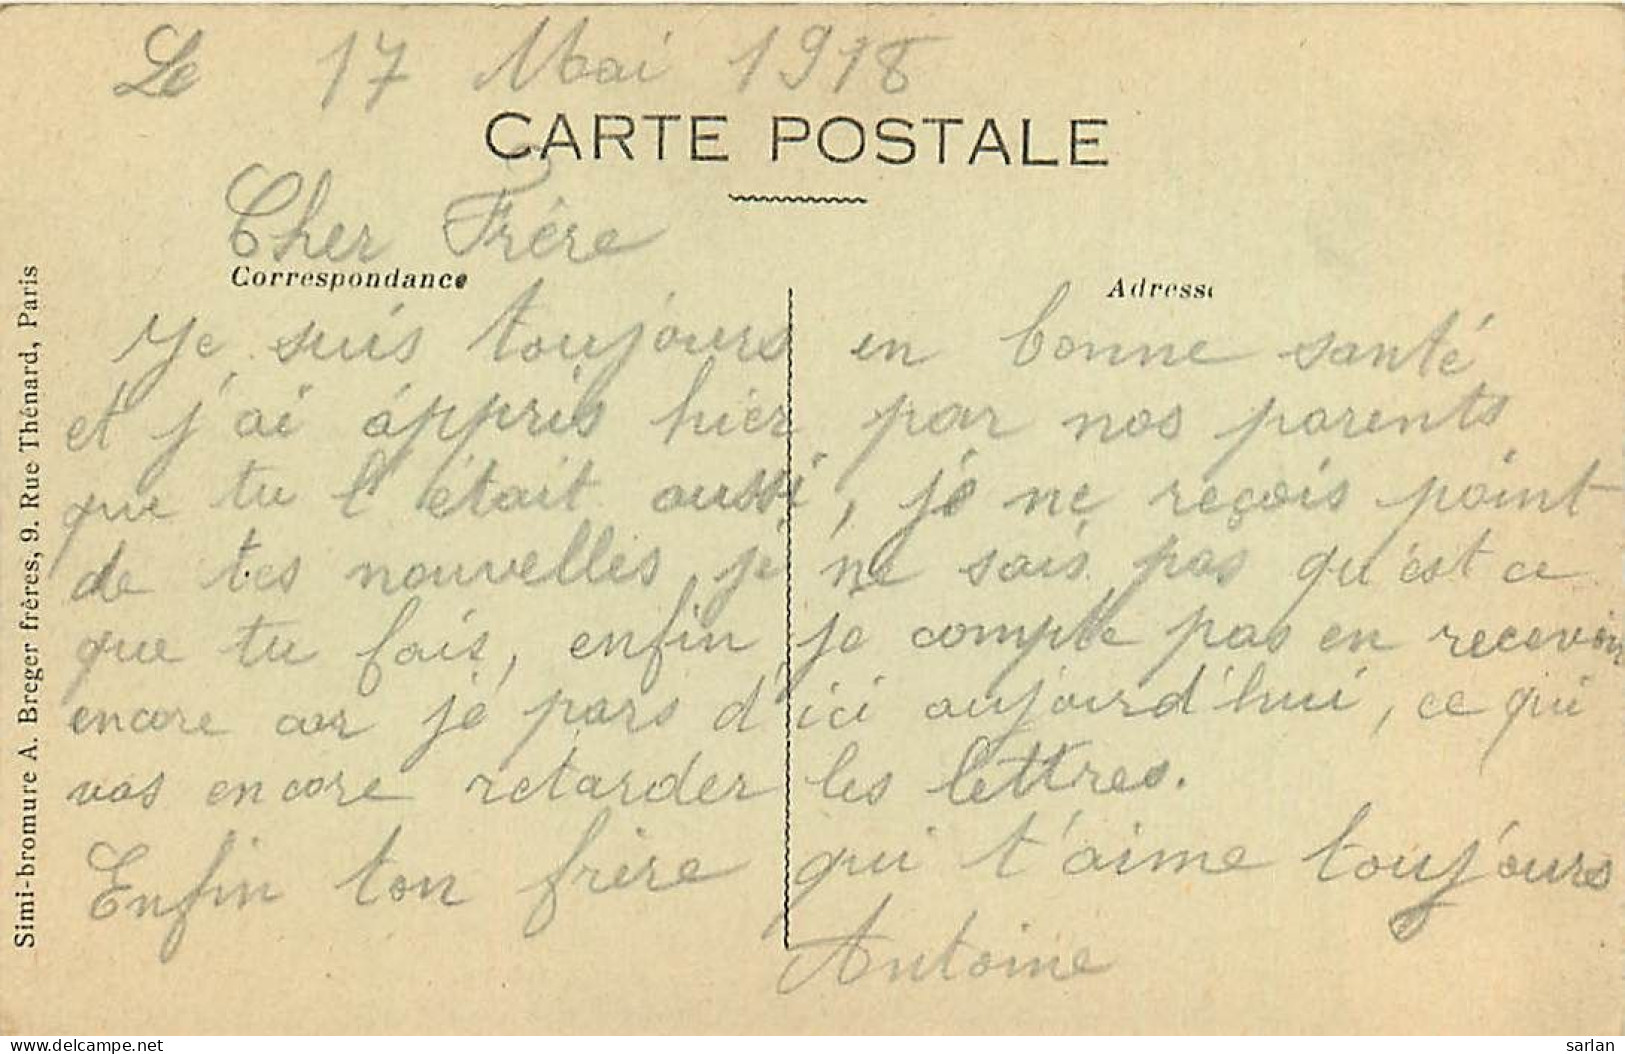 Le 17 Mai 1918
CARTE POSTALE
Cher Frère
Correspondance
Adresse
Je suis toujours en bonne santé
et j'ai áppris hier par nos parents
que tu l'était aussi, je ne reçois point
de tes nouvelles, je ne sais pas qu'est ce
que tu fais, enfin je compte pas en recevoir
encore car je pars d'ici aujourd'hui, ce qui
vas encore retarder les lettres.
Enfin ton frère qui t'aime toujours
Antoine
Simi-bromure A. Breger frères, 9. Rue Thénard, Paris
delcampe.net
sarlan